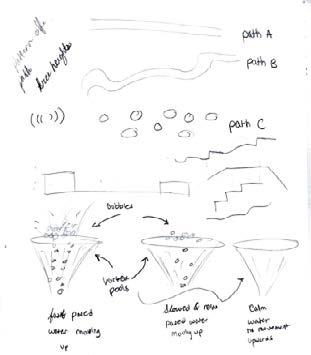 pattern of
path
tree heights
path A
path B
path C
bubbles
vortex
pools
fast paced
water moving
up
Slowed &
paced water
moving up
Calm
water
no movement
upwards